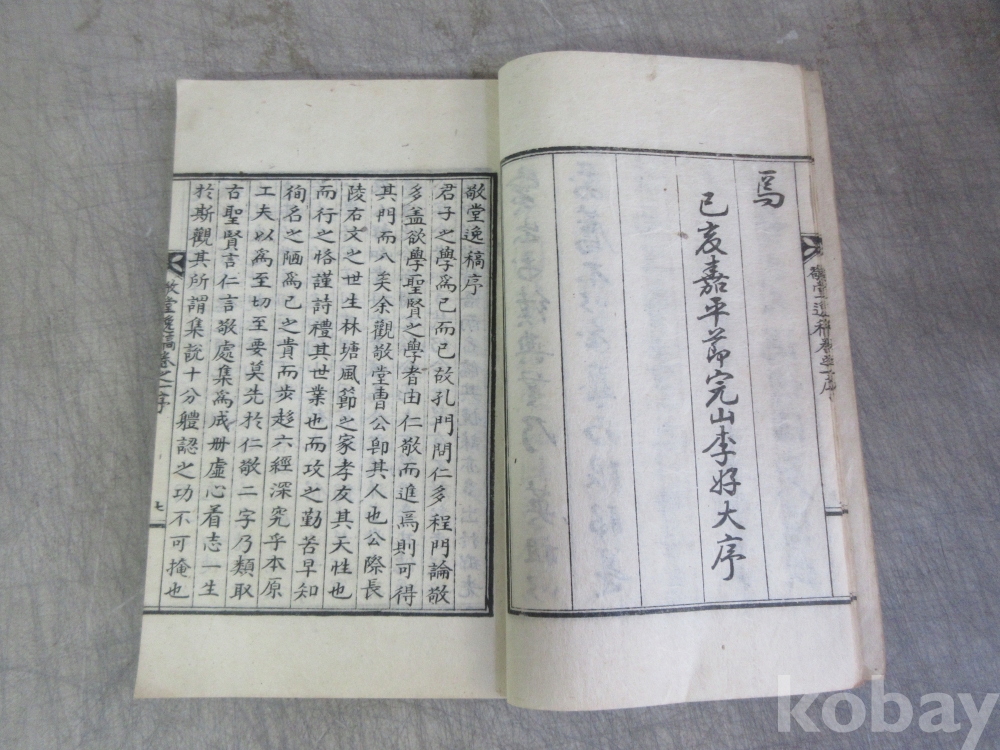 焉
己亥嘉平節完山李好大序
敬堂逸稿序
君子之學爲己而已故孔門問仁多程門論敬
多盖欲學聖賢之學者由仁敬而進焉則可得
其門而入矣余觀敬堂曺公卽其人也公際長
陵右文之世生林塘風節之家孝友其天性也
而行之恪謹詩禮其世業也而攻之勤苦早知
徇名之陋爲己之貴而步趍六經深究乎本原
工夫以爲至切至要莫先於仁敬二字乃類取
古聖賢言仁言敬處集爲成册虛心看志一生
於斯觀其所謂集說十分軆認之功不可掩也
敬堂逸稿卷之一序
七
kobay